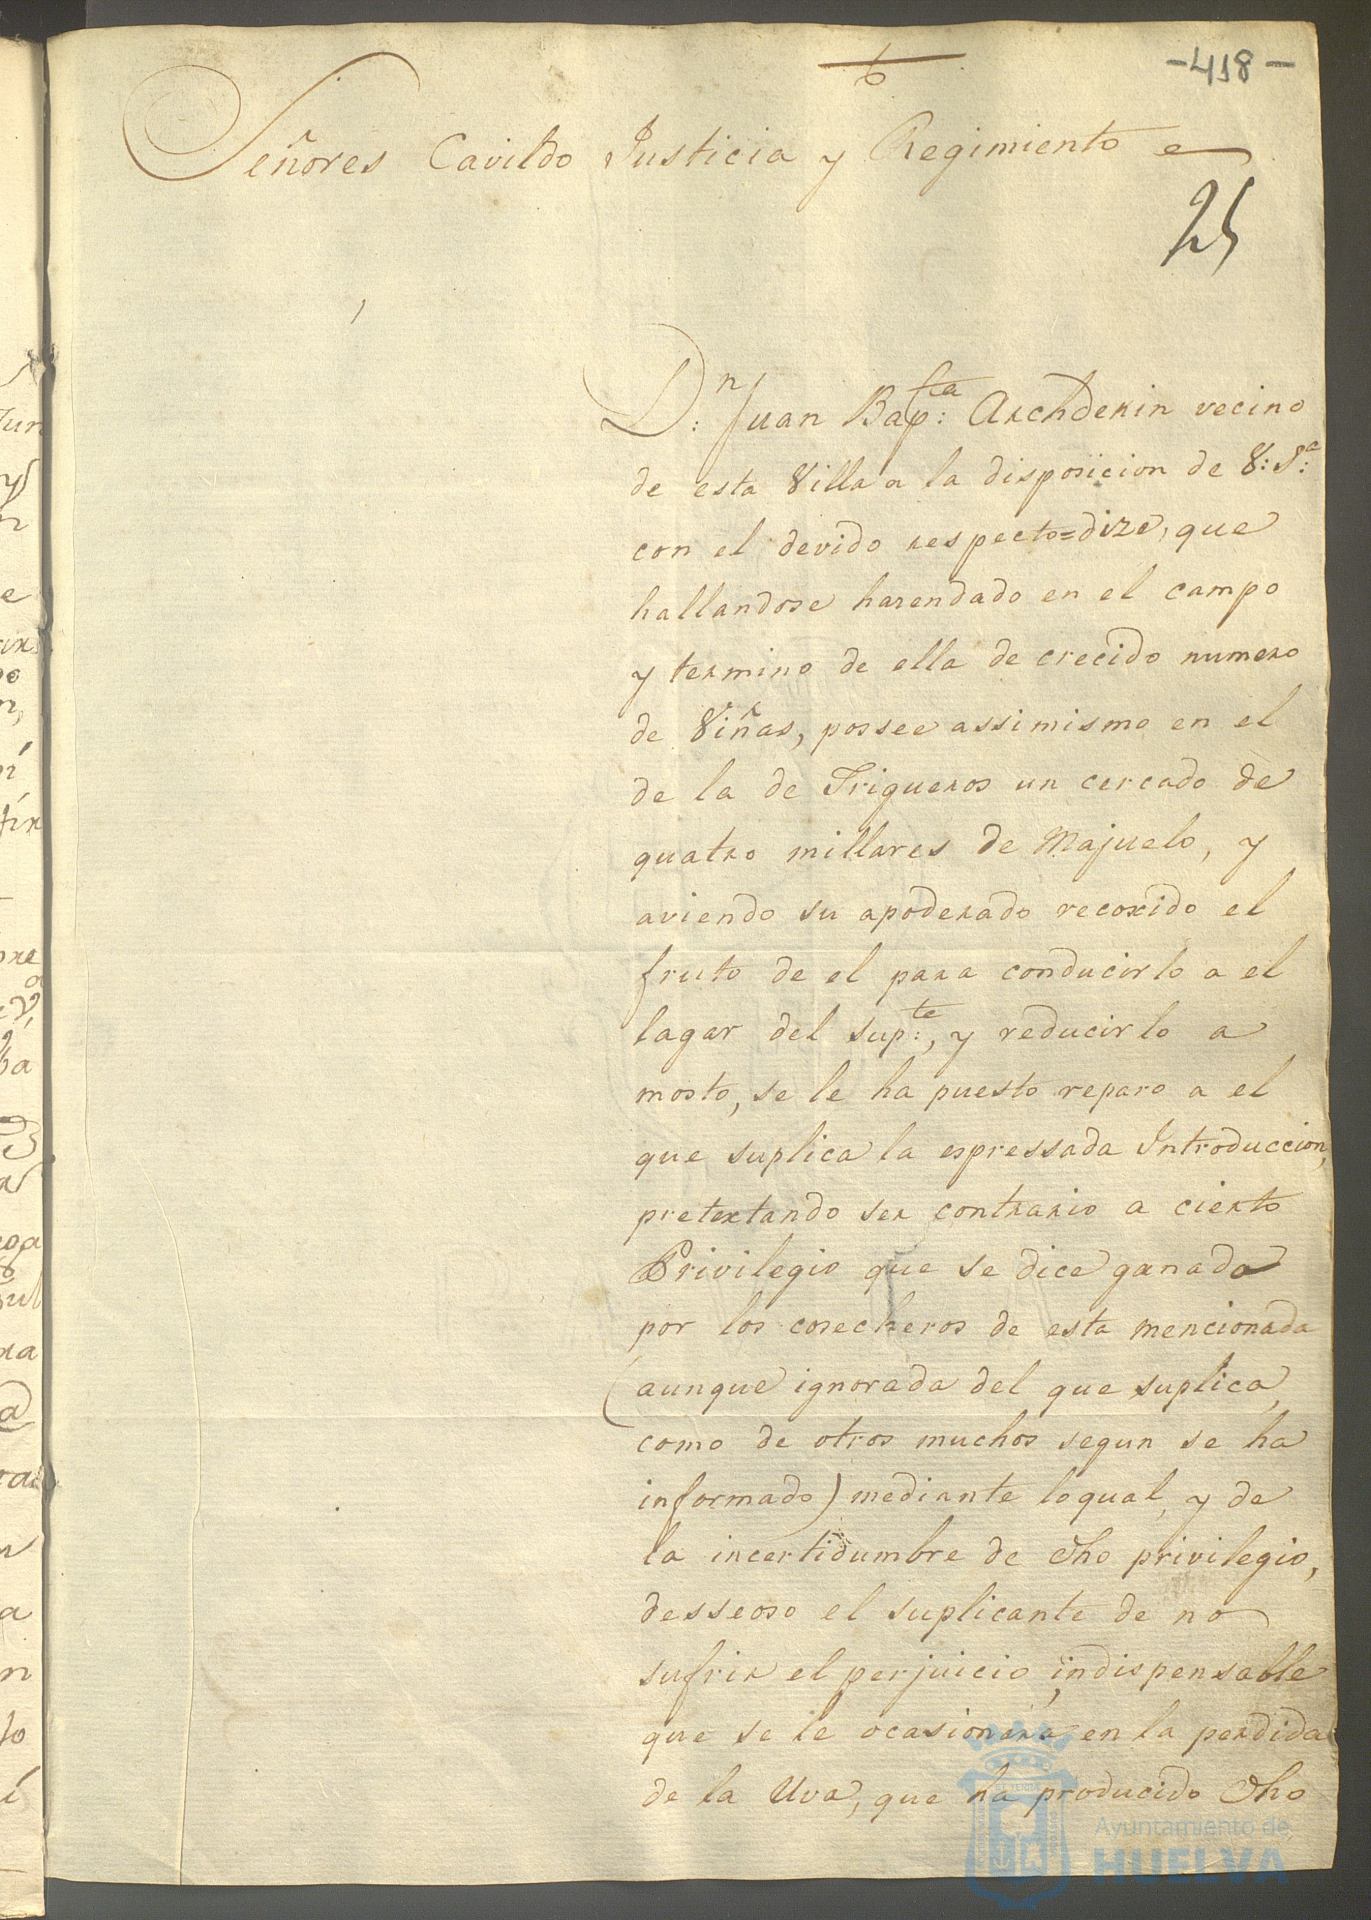 -418-
Señores Cavildo Justicia y Regimiento
25
D.n Juan Bap.ta Archderin vecino
de esta Villa a la disposicion de V.S.a
con el devido respecto=dize, que
hallandose harendado en el campo
y termino de ella de crecido numero
de Viñas, possee assimismo en el
de la de Trigueros un cercado de
quatro millares de Majuelo, y
aviendo su apoderado recoxido el
fruto de el para conducirlo a el
lagar del sup.te, y reducirlo a
mosto, se le ha puesto reparo a el
que suplica la espressada Introduccion,
pretextando ser contrario a cierto
Privilegio que se dice ganado
por los cosecheros de esta mencionada
(aunque ignorada del que suplica,
como de otros muchos segun se ha
informado) mediante loqual, y de
la incertidumbre de dho privilegio,
desseoso el suplicante de no
sufrir el perjuicio indispensable
que se le ocasionara en la perdida
de la Uva, que ha producido dho
Ayuntamiento de
HUELVA